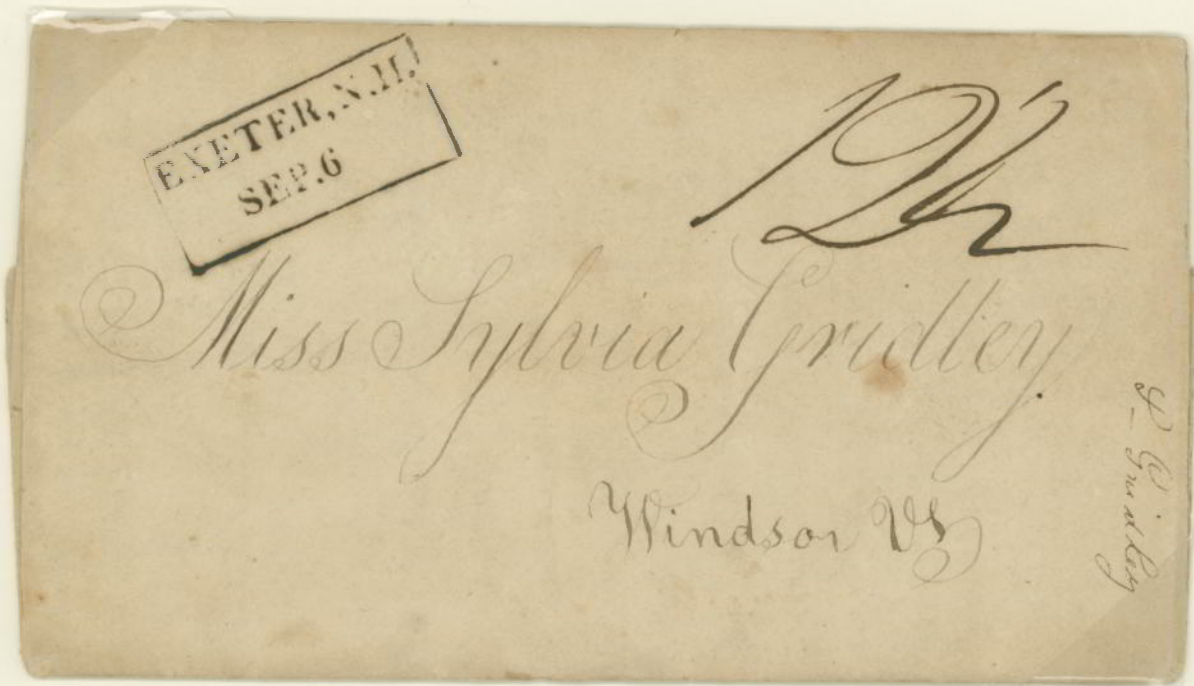 EXETER, N.H.
SEP. 6
12½
Miss Sylvia Gridley
Windsor Vt
Gridley